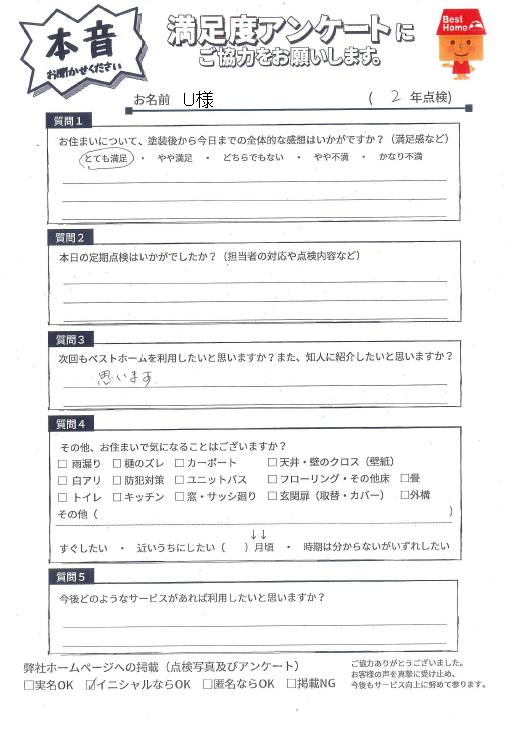 本音
お聞かせください
満足度アンケートに
ご協力をお願いします。
Best Home
お名前 U様 ( 2 年点検)
質問1
お住まいについて、塗装後から今日までの全体的な感想はいかがですか？（満足感など）
とても満足 ・ やや満足 ・ どちらでもない ・ やや不満 ・ かなり不満
質問2
本日の定期点検はいかがでしたか？（担当者の対応や点検内容など）
質問3
次回もベストホームを利用したいと思いますか？また、知人に紹介したいと思いますか？
思います
質問4
その他、お住まいで気になることはございますか？
□ 雨漏り □ 樋のズレ □ カーポート □ 天井・壁のクロス（壁紙）
□ 白アリ □ 防犯対策 □ ユニットバス □ フローリング・その他床 □畳
□ トイレ □ キッチン □ 窓・サッシ廻り □ 玄関扉（取替・カバー） □外構
その他（ ）
↓↓
すぐしたい ・ 近いうちにしたい（ ）月頃 ・ 時期は分からないがいずれしたい
質問5
今後どのようなサービスがあれば利用したいと思いますか？
弊社ホームページへの掲載（点検写真及びアンケート）
□実名OK ☑イニシャルならOK □匿名ならOK □掲載NG
ご協力ありがとうございました。
お客様の声を真摯に受け止め、
今後もサービス向上に努めて参ります。